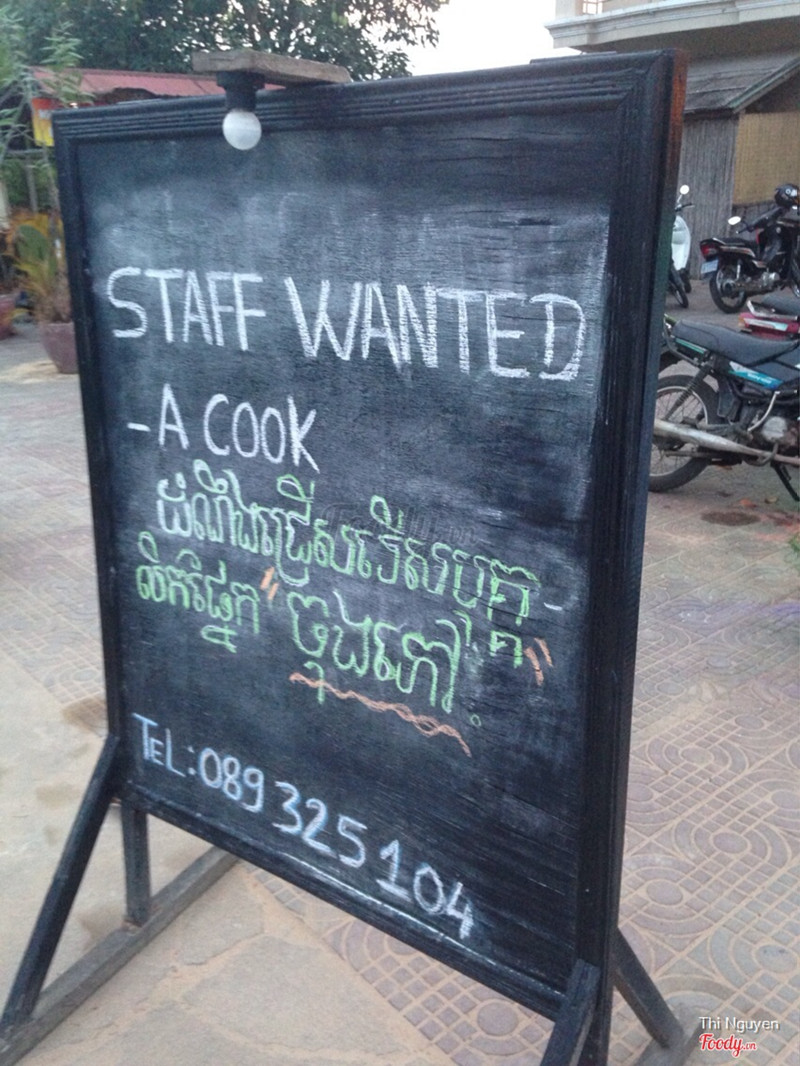 STAFF WANTED
- A COOK
ដំណឹងជ្រើសរើសបុគ្គ-
លិកផ្នែក "ចុងភៅ"
TEL: 089 325 104
Foody.vn
Thi Nguyen
Foody.vn